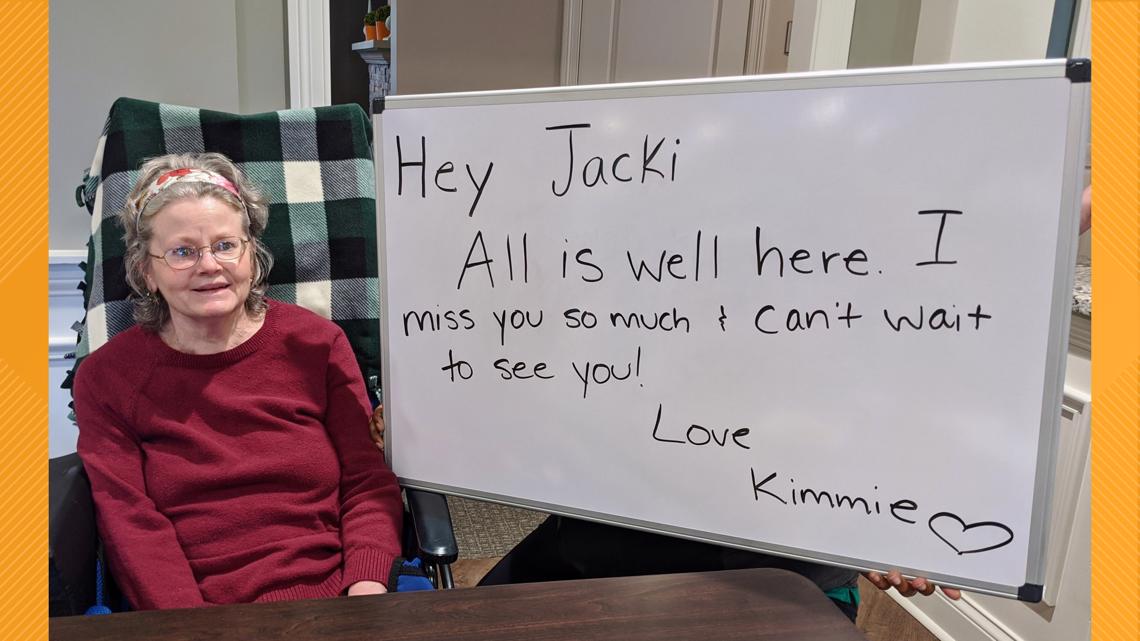 Hey Jacki
All is well here. I
miss you so much & can't wait
to see you!
Love
Kimmie